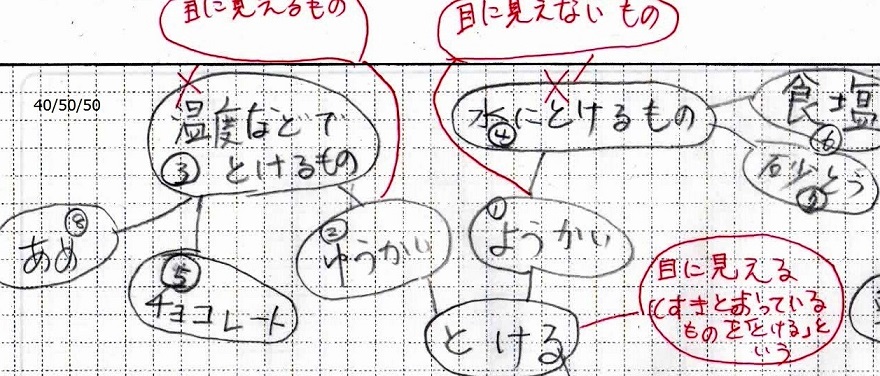 目に見えるもの
目に見えないもの
40/50/50
温度などで
③ とけるもの
水にとけるもの
④
食塩
⑥
砂とう
⑧
あめ
⑤
チョコレート
②
ゆうかい
①
ようかい
とける
目に見える
(すきとおっている
ものを「とける」と
いう